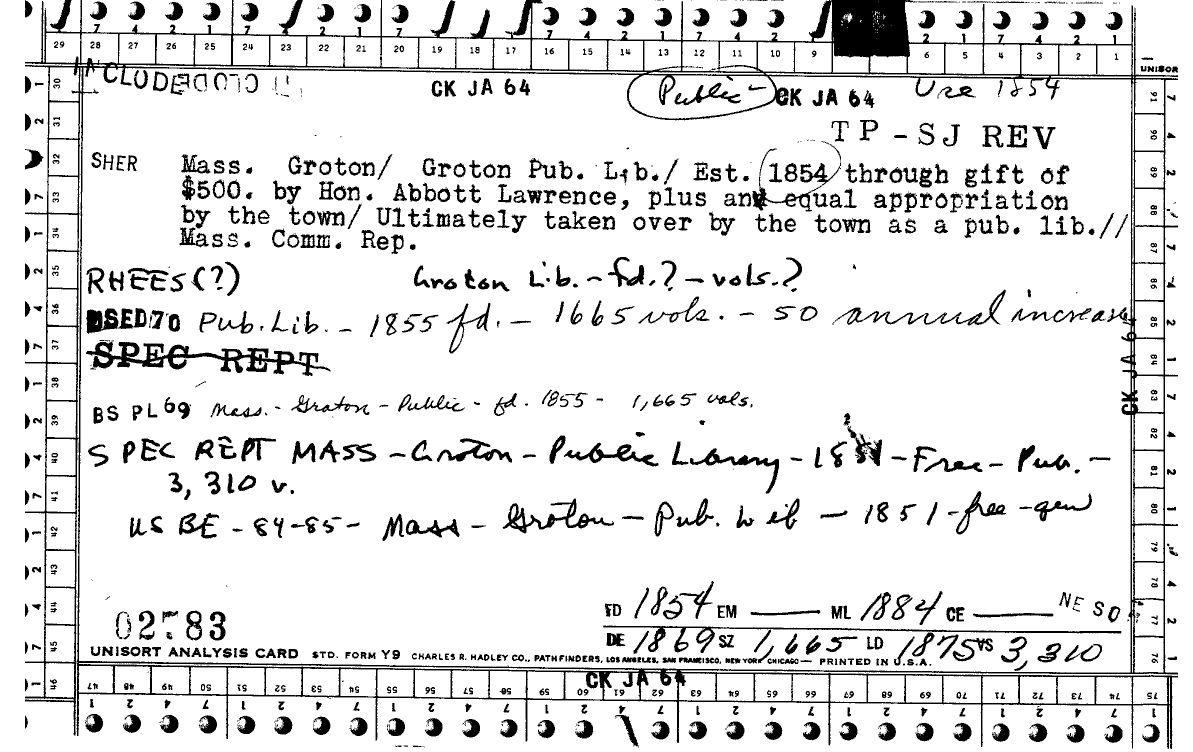 7 4 2 1 7 2 1 7 7 4 2 1 7 4 2 2 1 2 1
29 28 27 26 25 24 23 22 21 20 19 18 17 16 15 14 13 12 11 10 9 6 5 4 3 2 1
UNISOR
INCLUDED
CK JA 64
Public
CK JA 64
Use 1854
TP-SJ REV
SHER Mass. Groton/ Groton Pub. Lib./ Est. 1854 through gift of
$500. by Hon. Abbott Lawrence, plus an equal appropriation
by the town/ Ultimately taken over by the town as a pub. lib.//
Mass. Comm. Rep.
RHEES(?) Groton Lib. - fd.? - vols.?
USED70 Pub. Lib. - 1855 fd. - 1665 vols. - 50 annual increase
SPEC REPT
CK JA 6
BS PL69 Mass. - Groton - Public - fd. 1855 - 1,665 vols.
SPEC REPT MASS - Groton - Public Library - Free - Pub. -
3,310 v.
US BE - 84-85 - Mass - Groton - Pub. Lib - 1851 - free - gen
FD 1854 EM ML 1884 CE NESO
DE 1869 SZ 1,665 LD 1875 VS 3,310
02783
UNISORT ANALYSIS CARD STD. FORM Y9 CHARLES R. HADLEY CO., PATHFINDERS, LOS ANGELES, SAN FRANCISCO, NEW YORK CHICAGO — PRINTED IN U.S.A.
CK JA 64
47 48 49 50 51 52 53 54 55 56 57 58 59 60 61 62 63 64 65 66 67 68 69 70 71 72 73 74 75
1 2 4 7 1 2 4 7 1 2 4 7 1 2 4 7 1 2 4 7 1 2 4 7 1 2 4 7 1
30 31 32 33 34 35 36 37 38 39 40 41 42 43 44 45 46
91 90 89 88 87 86 85 84 83 82 81 80 79 78 77 76